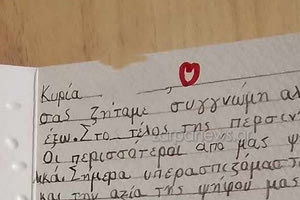 Κυρία ,
σας ζητάμε συγγνώμη αλ
έξω. Στο τέλος της περσιν
Οι περισσότεροι από μας ψ
κά. Σήμερα υπερασπεζόμαστ
και την αξία της ψήφου μας